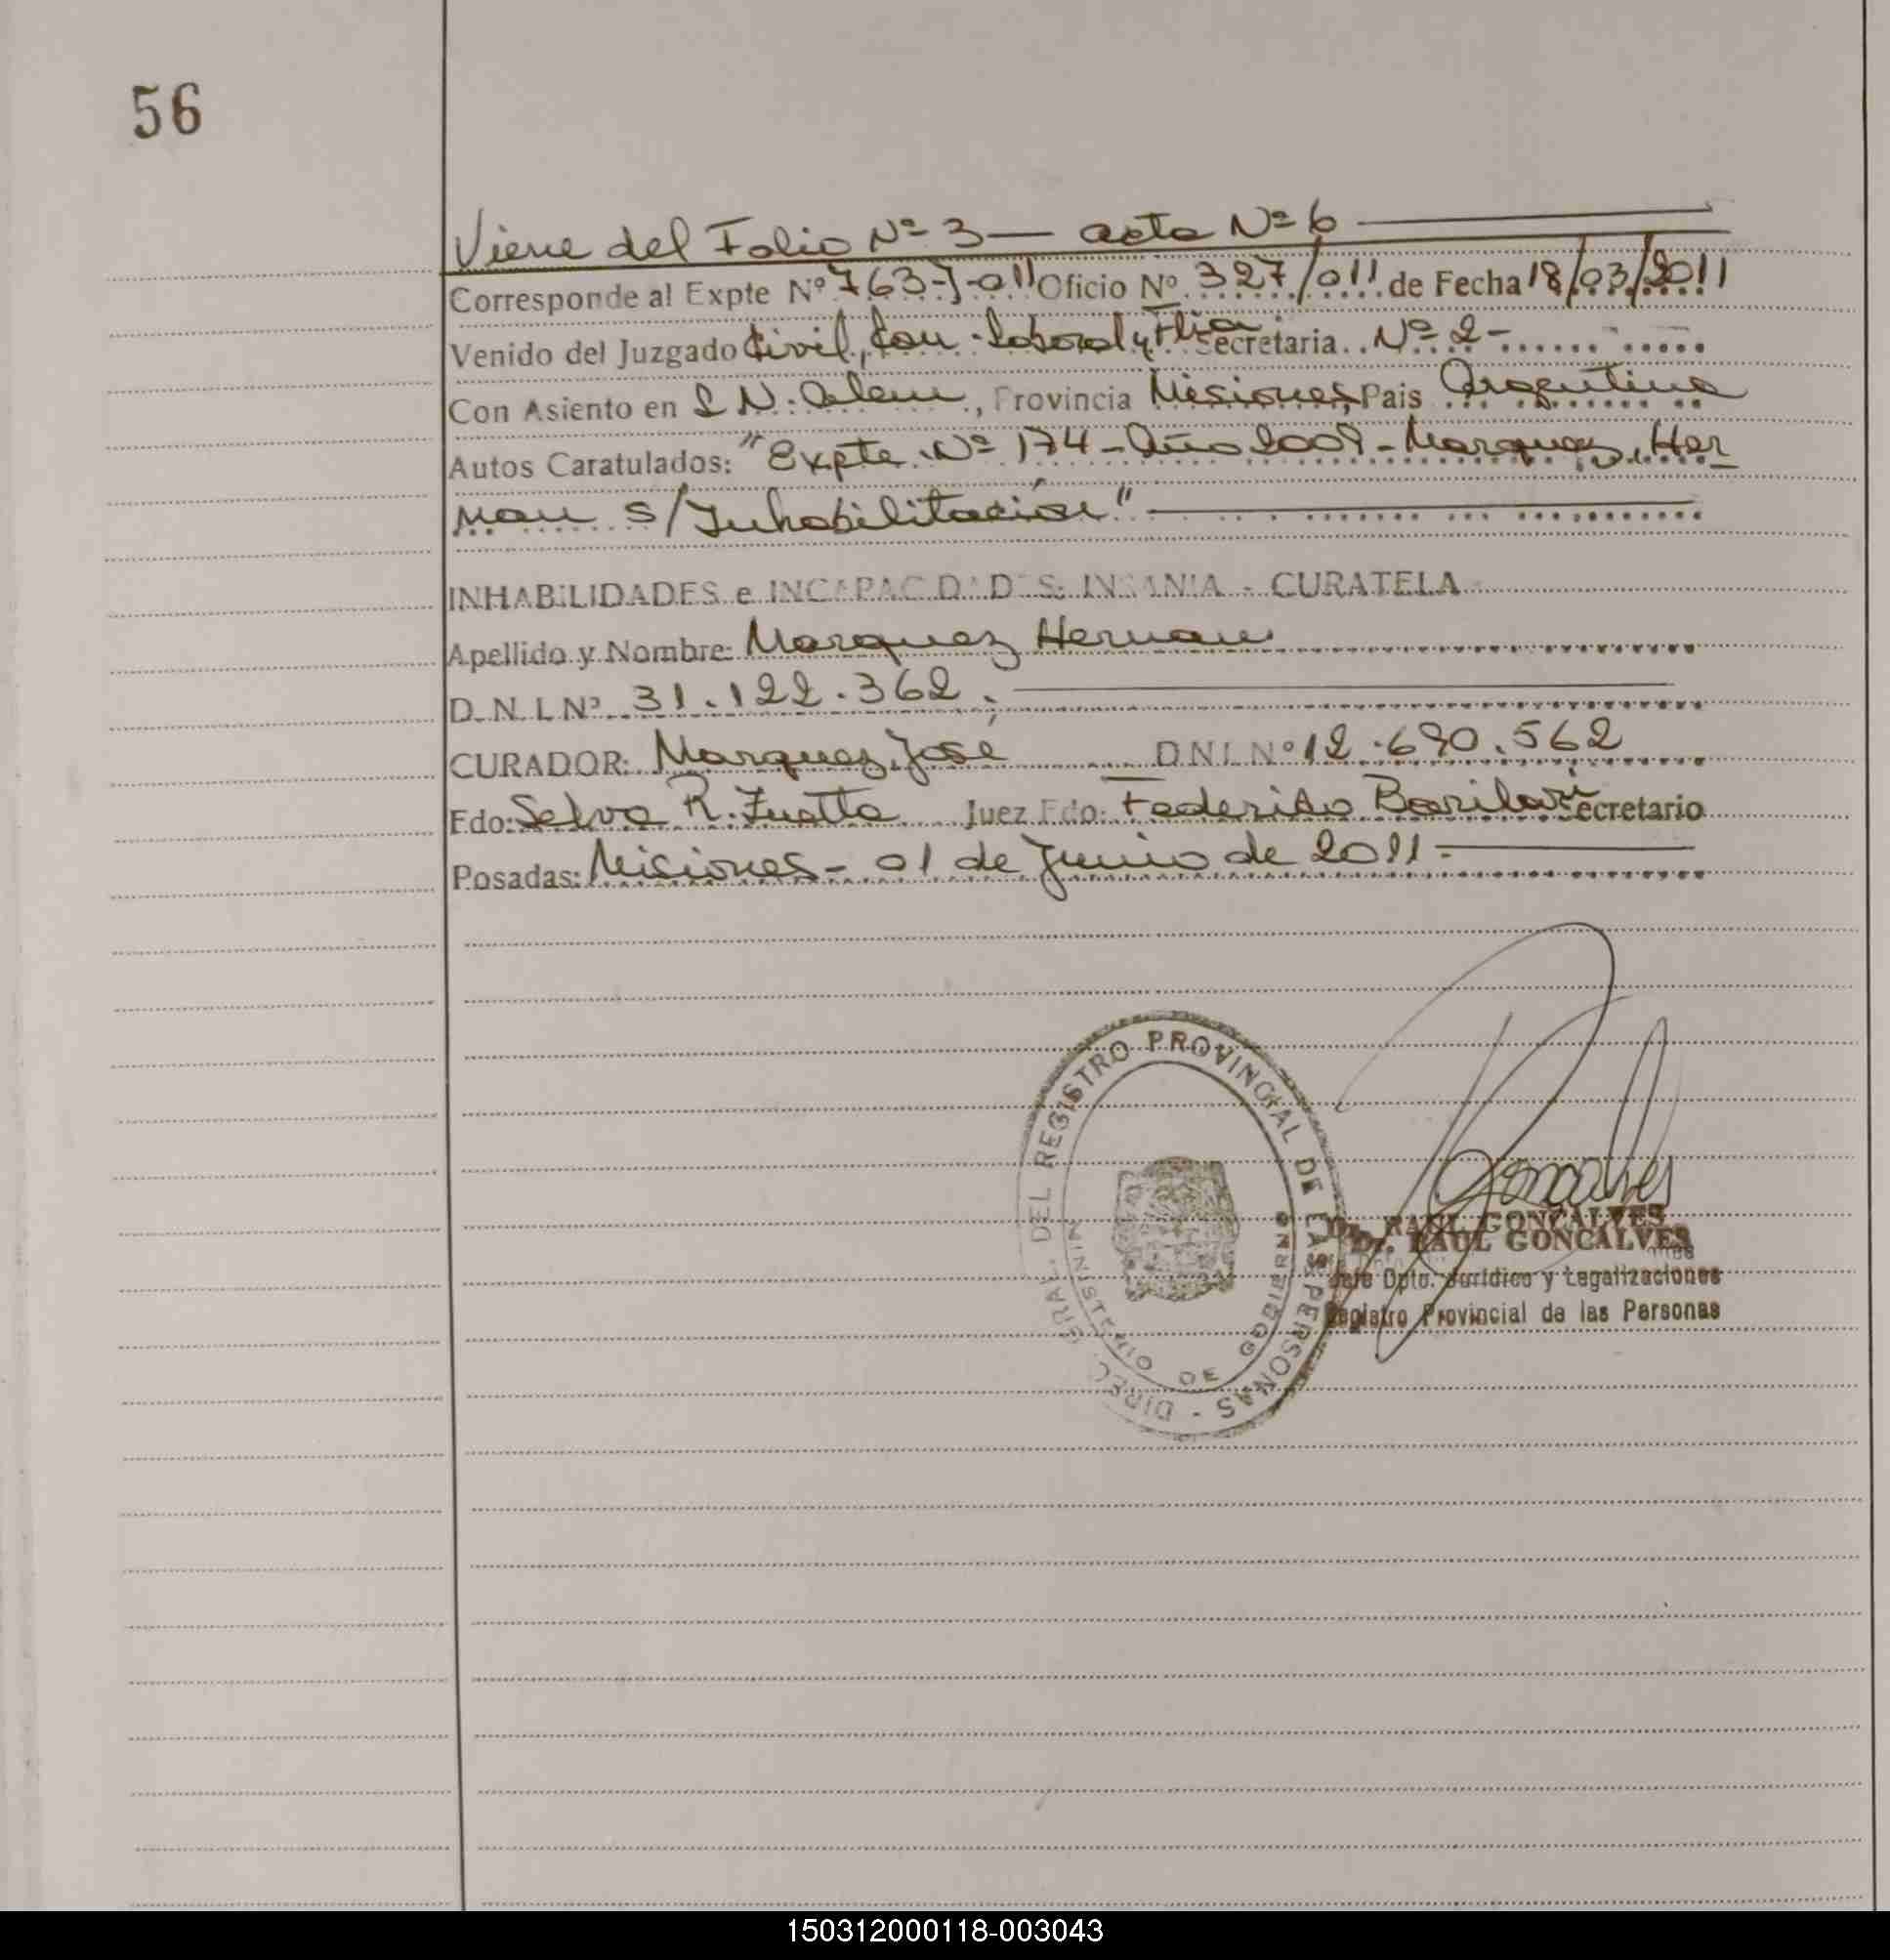 56
Viene del Folio Nº 3 — acta Nº 6
Corresponde al Expte Nº 763-J-011 Oficio Nº 327/011 de Fecha 18/03/2011
Venido del Juzgado Civil, Com. Laboral y Flia Secretaria Nº 2-
Con Asiento en L N. Alem, Provincia Misiones, Pais Argentina
Autos Caratulados: "Expte. Nº 174 - Año 2009 - Marquez, Her
man s/Inhabilitación"
INHABILIDADES e INCAPACIDADES: INSANIA - CURATELA
Apellido y Nombre: Marquez Hernan
D.N.I Nº 31.122.362.;
CURADOR: Marquez, José D.N.I. Nº 12.690.562
Fdo: Selva R. Juez Fdo: Federico Barilari Secretario
Posadas: Misiones - 01 de Junio de 2011.-
DIREC. GRAL. DEL REGISTRO PROVINCIAL DE LAS PERSONAS -
MINISTERIO DE GOBIERNO
Goncalves
Dr. RAUL GONCALVES
Dr. RAUL GONCALVES
Jefe Dpto. Jurídico y Legalizaciones
Registro Provincial de las Personas
150312000118-003043